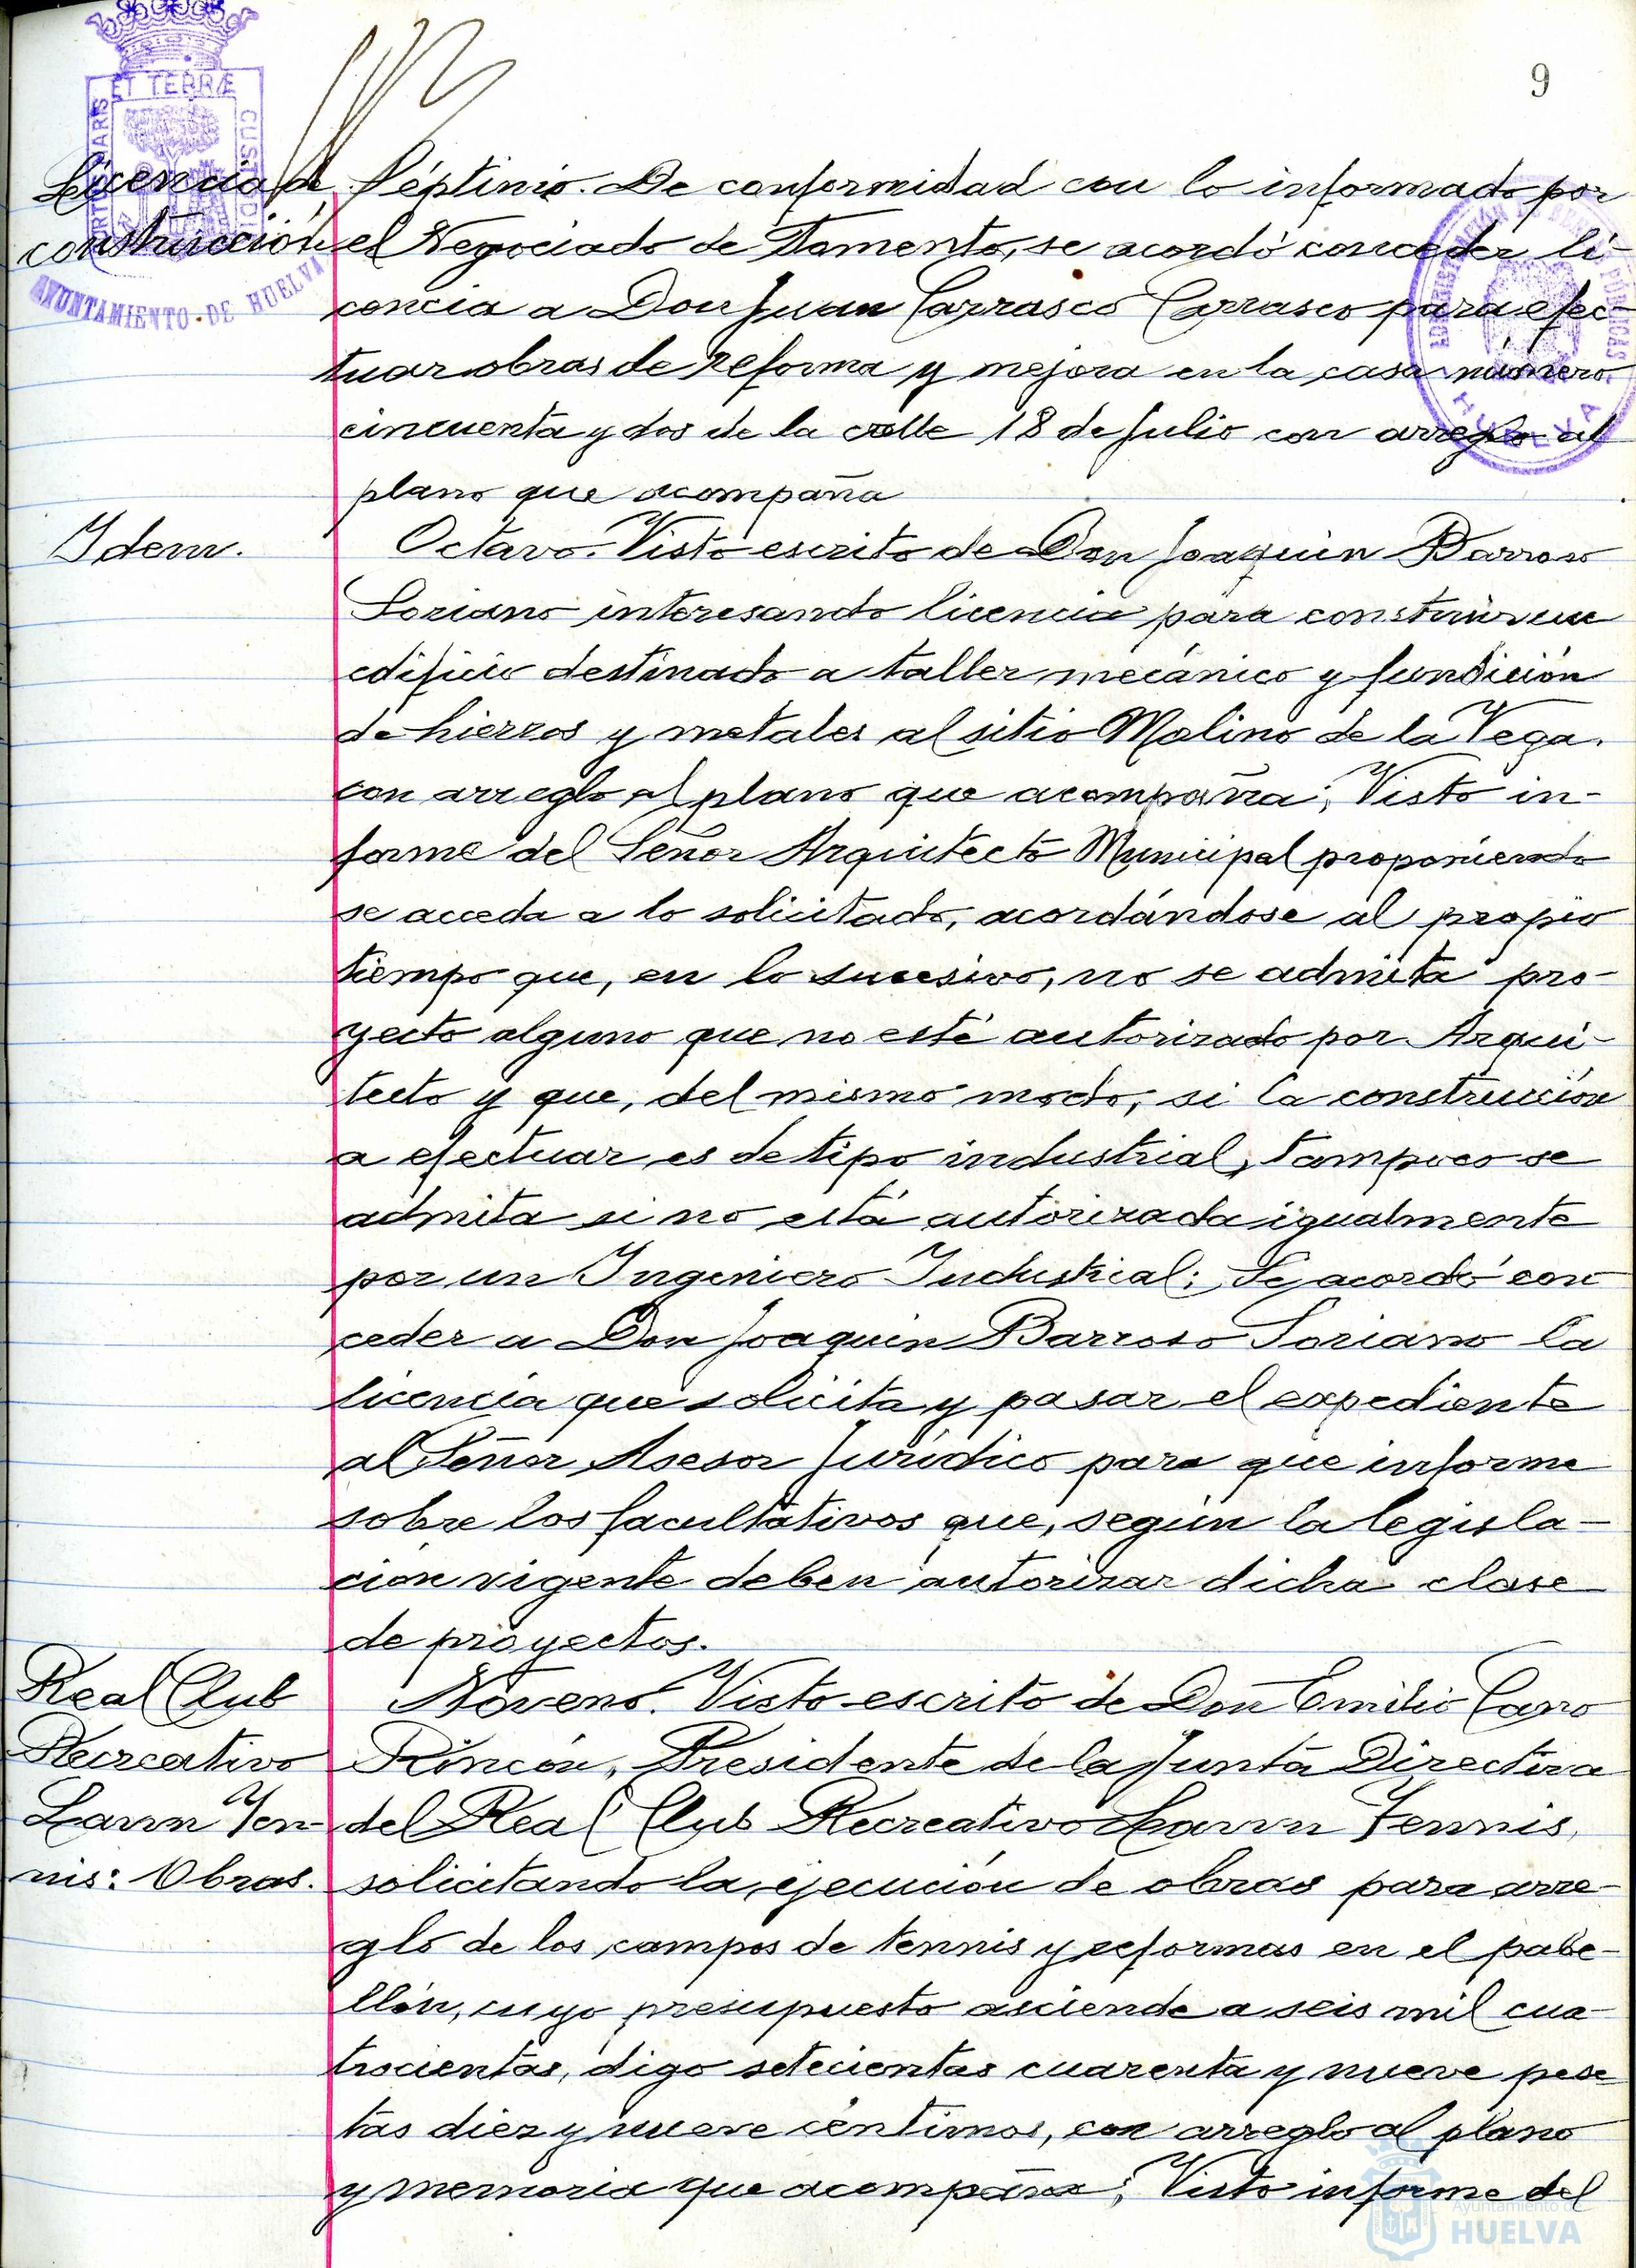 9
PORTUS MARIS ET TERRÆ CUSTODIA
AYUNTAMIENTO DE HUELVA
HUELVA
Licencia de
construcción
Séptimo. De conformidad con lo informado por
el Negociado de Fomento, se acordó conceder li-
cencia a Don Juan Carrasco Carrasco para efec-
tuar obras de reforma y mejora en la casa número
cincuenta y dos de la calle 18 de Julio con arreglo al
plano que acompaña
Idem.
Octavo. Visto escrito de Don Joaquin Barroso
Soriano interesando licencia para construir un
edificio destinado a taller mecánico y fundición
de hierros y metales al sitio Molino de la Vega.
con arreglo al plano que acompaña; Visto in-
forme del Señor Arquitecto Municipal proponiendo
se acceda a lo solicitado, acordándose al propio
tiempo que, en lo sucesivo, no se admita pro-
yecto alguno que no esté autorizado por Arqui-
tecto y que, del mismo modo, si la construcción
a efectuar es de tipo industrial, tampoco se
admita si no está autorizada igualmente
por un Ingeniero Industrial; Se acordó con
ceder a Don Joaquin Barroso Soriano la
licencia que solicita y pasar el expediente
al Señor Asesor Jurídico para que informe
sobre los facultativos que, según la legisla-
ción vigente deben autorizar dicha clase
de proyectos.
Real Club
Recreativo
Lawn Ten-
nis: Obras.
Noveno. Visto escrito de Don Emilio Cano
Rincón, Presidente de la Junta Directiva
del Real Club Recreativo Lawn Tennis,
solicitando la ejecución de obras para arre-
glo de los campos de tennis y reformas en el pabe-
llón, cuyo presupuesto asciende a seis mil cua-
trocientas, digo setecientas cuarenta y nueve pese-
tas diez y nueve céntimos, con arreglo al plano
y memoria que acompaña; Visto informe del
Ayuntamiento de
HUELVA